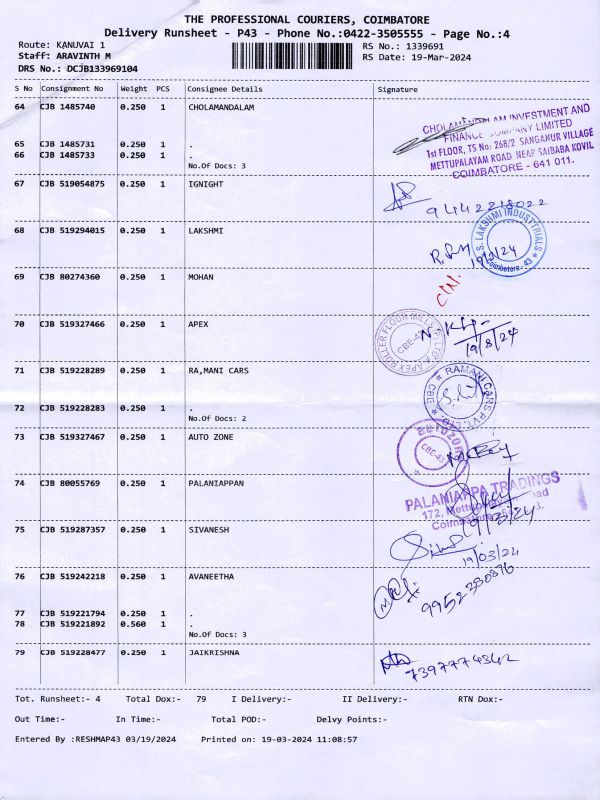 THE PROFESSIONAL COURIERS, COIMBATORE
Delivery Runsheet - P43 - Phone No.:0422-3505555 - Page No.:4
Route: KANUVAI 1 RS No.: 1339691
Staff: ARAVINTH M RS Date: 19-Mar-2024
DRS No.: DCJB133969104
S No Consignment No Weight PCS Consignee Details Signature
64 CJB 1485740 0.250 1 CHOLAMANDALAM
CHOLAMANDALAM INVESTMENT AND
FINANCE COMPANY LIMITED
1st FLOOR, TS No: 268/2 SANGANUR VILLAGE
METTUPALAYAM ROAD NEAR SAIBABA KOVIL
COIMBATORE - 641 011.
65 CJB 1485731 0.250 1 .
66 CJB 1485733 0.250 1 .
No.Of Docs: 3
67 CJB 519054875 0.250 1 IGNIGHT
9442218022
68 CJB 519294015 0.250 1 LAKSHMI
S. LAKSHMI INDUSTRIALS
Coimbatore - 43
69 CJB 80274360 0.250 1 MOHAN
70 CJB 519327466 0.250 1 APEX
APEX ROLLER FLOUR MILLS P LTD
CBE-43
19/3/24
71 CJB 519228289 0.250 1 RA,MANI CARS
RAMANI CARS PVT. LTD
CBE
72 CJB 519228283 0.250 1 .
No.Of Docs: 2
73 CJB 519327467 0.250 1 AUTO ZONE
CBE-43
74 CJB 80055769 0.250 1 PALANIAPPAN
PALANIAPPA TRADINGS
172, Road
19/3/24
75 CJB 519287357 0.250 1 SIVANESH
19/03/24
76 CJB 519242218 0.250 1 AVANEETHA
9952330876
77 CJB 519221794 0.250 1 .
78 CJB 519221892 0.560 1 .
No.Of Docs: 3
79 CJB 519228477 0.250 1 JAIKRISHNA
7397774342
Tot. Runsheet:- 4 Total Dox:- 79 I Delivery:- II Delivery:- RTN Dox:-
Out Time:- In Time:- Total POD:- Delvy Points:-
Entered By :RESHMAP43 03/19/2024 Printed on: 19-03-2024 11:08:57